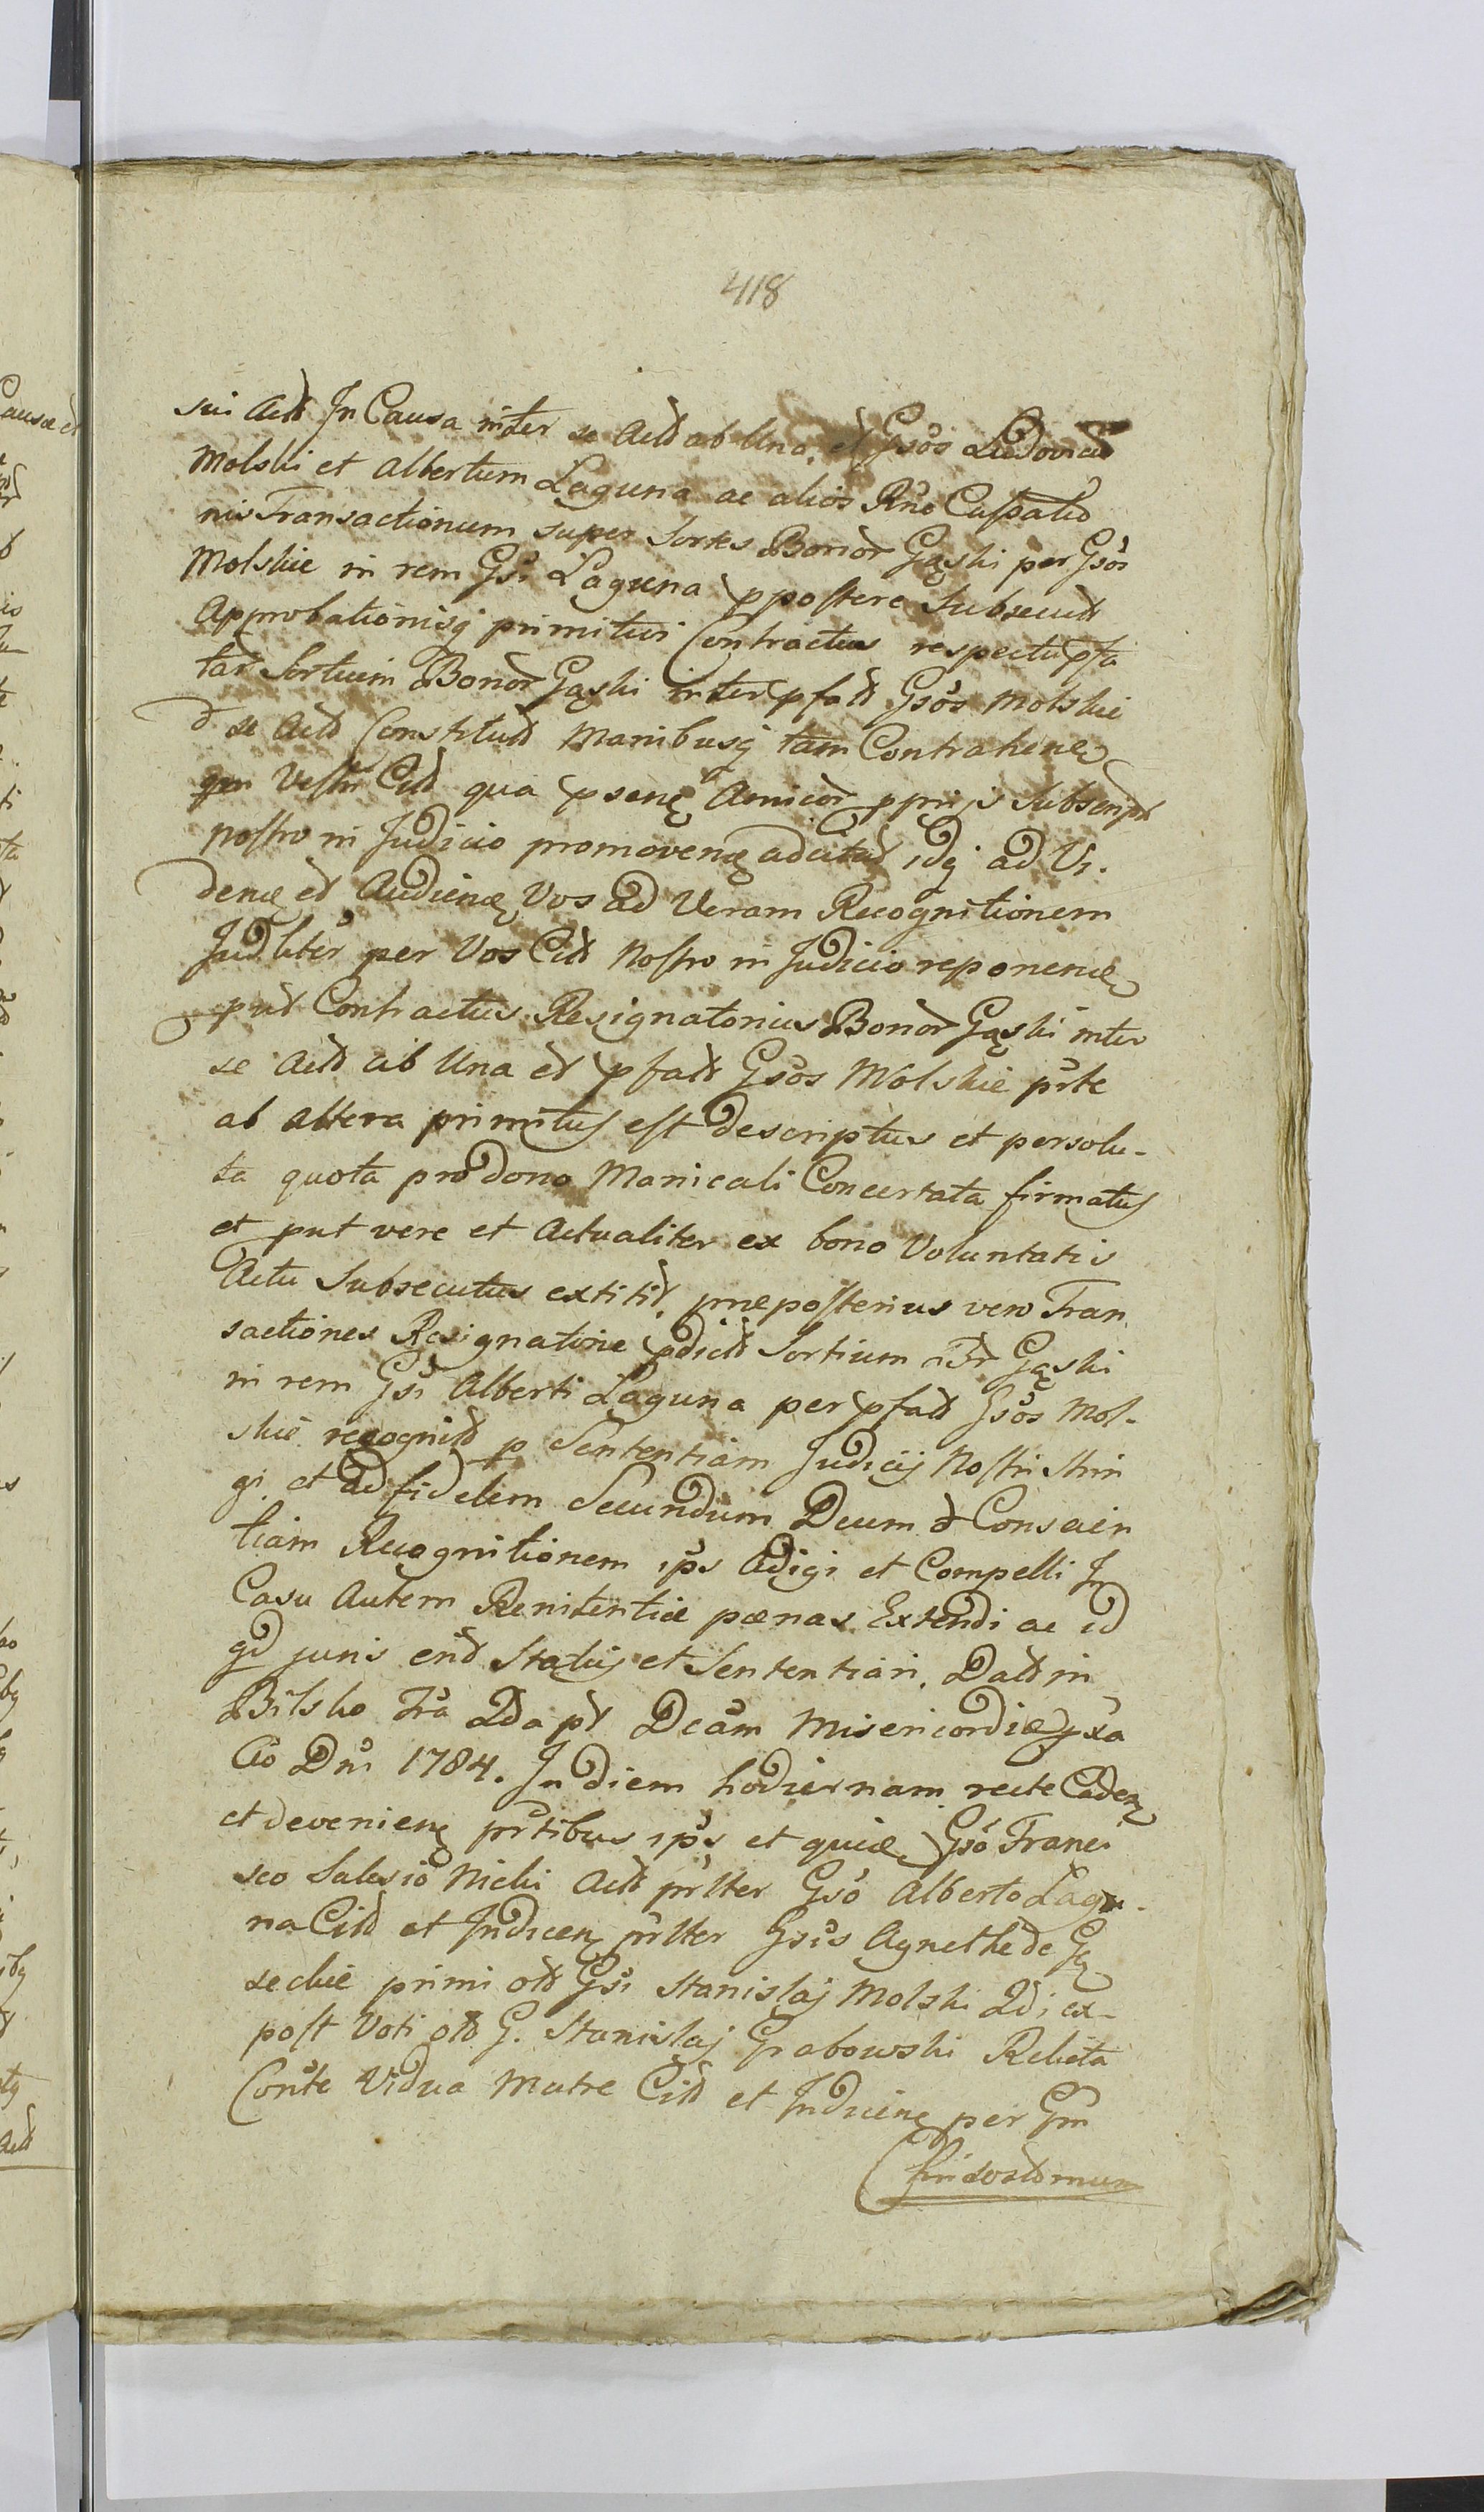 418
sui Actt In Causa inter se Actt ab Una, et Gsos Ludovicū
Molski et Albertum Laguna ac alios Rñe Cassatio
nis Transactionum super Sortes Bonor Gąski per Gsos
Molskie in rem Gsi Laguna ppostere Subsecutt
Approbationisq primitivi Contractus respectu pfa
tar Sortium Bonor Gąski inter pfatt Gsos Molskie
et se Actt Constitutt Manibusq tam Contrahenę
qm Vestri Citt qua psenę Amicor pprijs Subscript
nostro in Judicio promovenę adcitat idq ad Vi.
denę et Audienę Vos ad Veram Recognitionem
Judliter per Vos Citt Nostro in Judicio reponenę
put Contractus Resignatorius Bonor Gąski inter
se Actt ab Una et pfatt Gsos Molskie prte
ab altera primitus est descriptus et persolu-
ta quota pro dono Manicali Concertata firmatus
et put vere et Actualiter ex bono Voluntatis
Actu Subsecutus extitit, præposterius vero Tran
sactiones Resignatorie pdictt Sortium Br Gąski
in rem Gsi Alberti Laguna per pfatt Gsos Mol-
skie recognitt p Sententiam Judicij Nostri Strin
gi et ad fidelem Secundum Deum et Conscien
tiam Recognitionem ips Adigi et Compelli In
Casu Autem Renitentiæ pænas Extendi ac id
qd juris erit Statui et Sententiari. Datt in
Bilsko Fra 2da pt Dcam Misericordiæ pxa
Ao Dni 1784. In diem hodiernam recte Cadenę
et devenienę prtibus ips et quidę Gso Franci
sco Salesio Nicki Act prlter Gso Alberto Lagu-
na Citt et Indicenę prlter Gsis Agnethe de Gą
seckie primi ott Gsi Stanislaj Molski 2di ex-
post Voti ott G. Stanislaj Grabowski Relicta
Conte Vidua Matre Citt et Inducenę per Gm
Chrisostomum